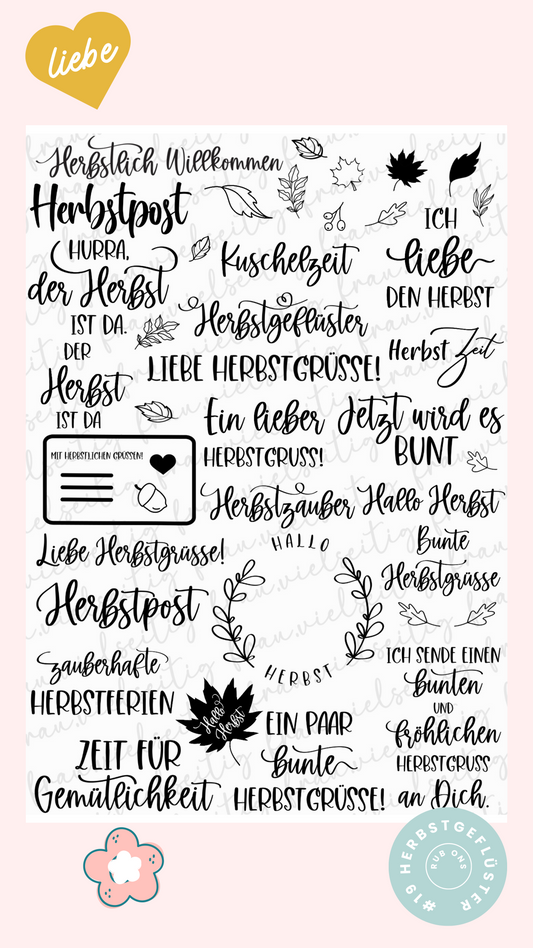 liebe
Herbstlich Willkommen
Herbstpost
ICH
liebe
DEN HERBST
HURRA,
der Herbst
IST DA.
Kuschelzeit
Herbstgeflüster
DER
Herbst
IST DA
LIEBE HERBSTGRÜSSE!
Herbst Zeit
Ein lieber
HERBSTGRUSS!
Jetzt wird es
BUNT
MIT HERBSTLICHEN GRÜSSEN!
Herbstzauber
Hallo Herbst
Liebe Herbstgrüsse!
HALLO
HERBST
Bunte
Herbstgrüsse
Herbstpost
zauberhafte
HERBSTFERIEN
Hallo
Herbst
EIN PAAR
bunte
HERBSTGRÜSSE!
ICH SENDE EINEN
bunten
UND
fröhlichen
HERBSTGRUSS
an Dich.
ZEIT FÜR
Gemütlichkeit
#19 HERBSTGEFLÜSTER
RUB ONS
frau.vielseitig